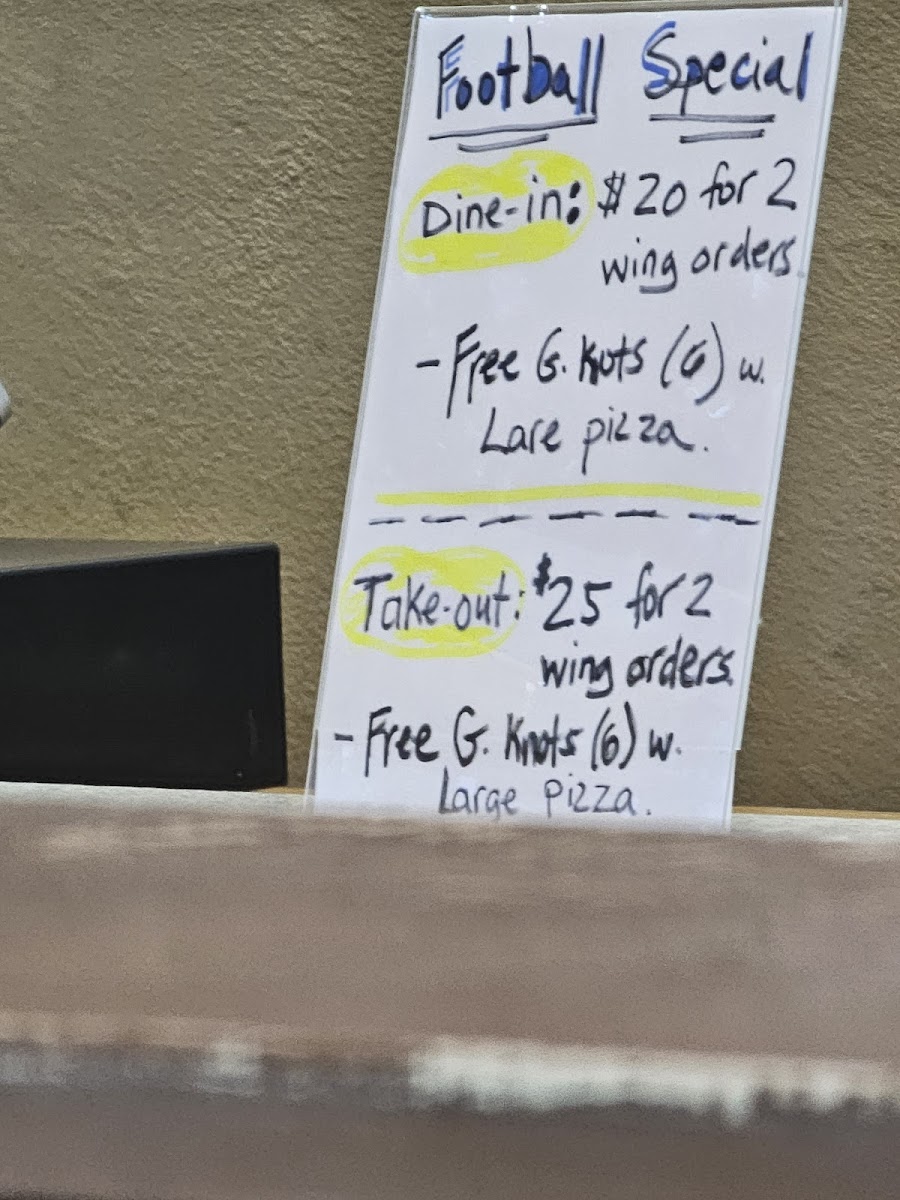 Football Special
Dine-in: $20 for 2
wing orders
- Free G. Knots (6) w.
Lare pizza.
Take-out: $25 for 2
wing orders.
- Free G. Knots (6) w.
Large Pizza.